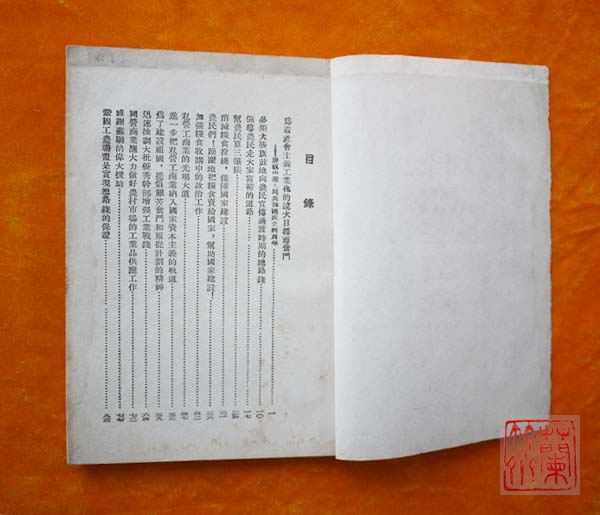 目錄
為着社會主義工業化的遠大目標而奮鬥
必須大張旗鼓地向農民宣傳過渡時期的總路綫
領導農民走大家富裕的道路
幫農民算三筆賬
消滅糧食投機，保障國家建設
農民們！踴躍地把糧食賣給國家，幫助國家建設！
加强糧食收購中的政治工作
私營工商業的光明大道
進一步把私營工商業納入國家資本主義的軌道
為了建設祖國，提倡艱苦奮鬥和服從計劃的精神
迅速抽調大批優秀幹部增强工業戰綫
國營商業應大力做好農村市場的工業品供應工作
感謝蘇聯的偉大援助
鞏固工農聯盟是實現總路綫的保證
蘭